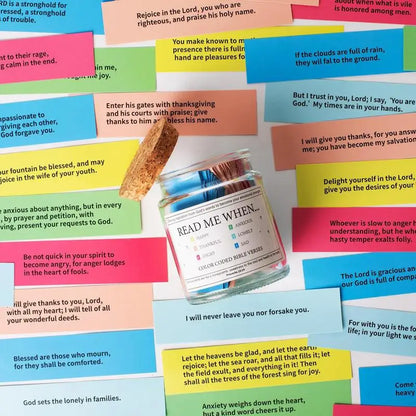 RD is a stronghold for
pressed, a stronghold
s of trouble.
Rejoice in the Lord, you who are
righteous, and praise his holy name.
about when what is vile
is honored among men.
nt to their rage,
g calm in the end.
in me,
me joy.
You make known to m
presence there is fulln
hand are pleasures fo
If the clouds are full of rain,
they wil fal to the ground.
mpassionate to
rgiving each other,
God forgave you.
Enter his gates with thanksgiving
and his courts with praise; give
thanks to him a bless his name.
But I trust in you, Lord; I say, 'You are
God.' My times are in your hands.
I will give you thanks, for you answe
me; you have become my salvation
our fountain be blessed, and may
ejoice in the wife of your youth.
Delight yourself in the Lord,
give you the desires of your
e anxious about anything, but in every
, by prayer and petition, with
ving, present your requests to God.
READ ME WHEN...
HAPPY
THANKFUL
ANGRY
ANXIOUS
LONELY
SAD
COLOR CODED BIBLE VERSES
Whoever is slow to anger
understanding, but he who
hasty temper exalts folly.
Be not quick in your spirit to
become angry, for anger lodges
in the heart of fools.
The Lord is gracious an
our God is full of compa
will give thanks to you, Lord,
with all my heart; I will tell of all
your wonderful deeds.
I will never leave you nor forsake you.
For with you is the fo
life; in your light we s
Blessed are those who mourn,
for they shall be comforted.
Let the heavens be glad, and let the earth
rejoice; let the sea roar, and all that fills it; let
the field exult, and everything in it! Then
shall all the trees of the forest sing for joy.
God sets the lonely in families.
Come
heavy
Anxiety weighs down the heart,
but a kind word cheers it up.